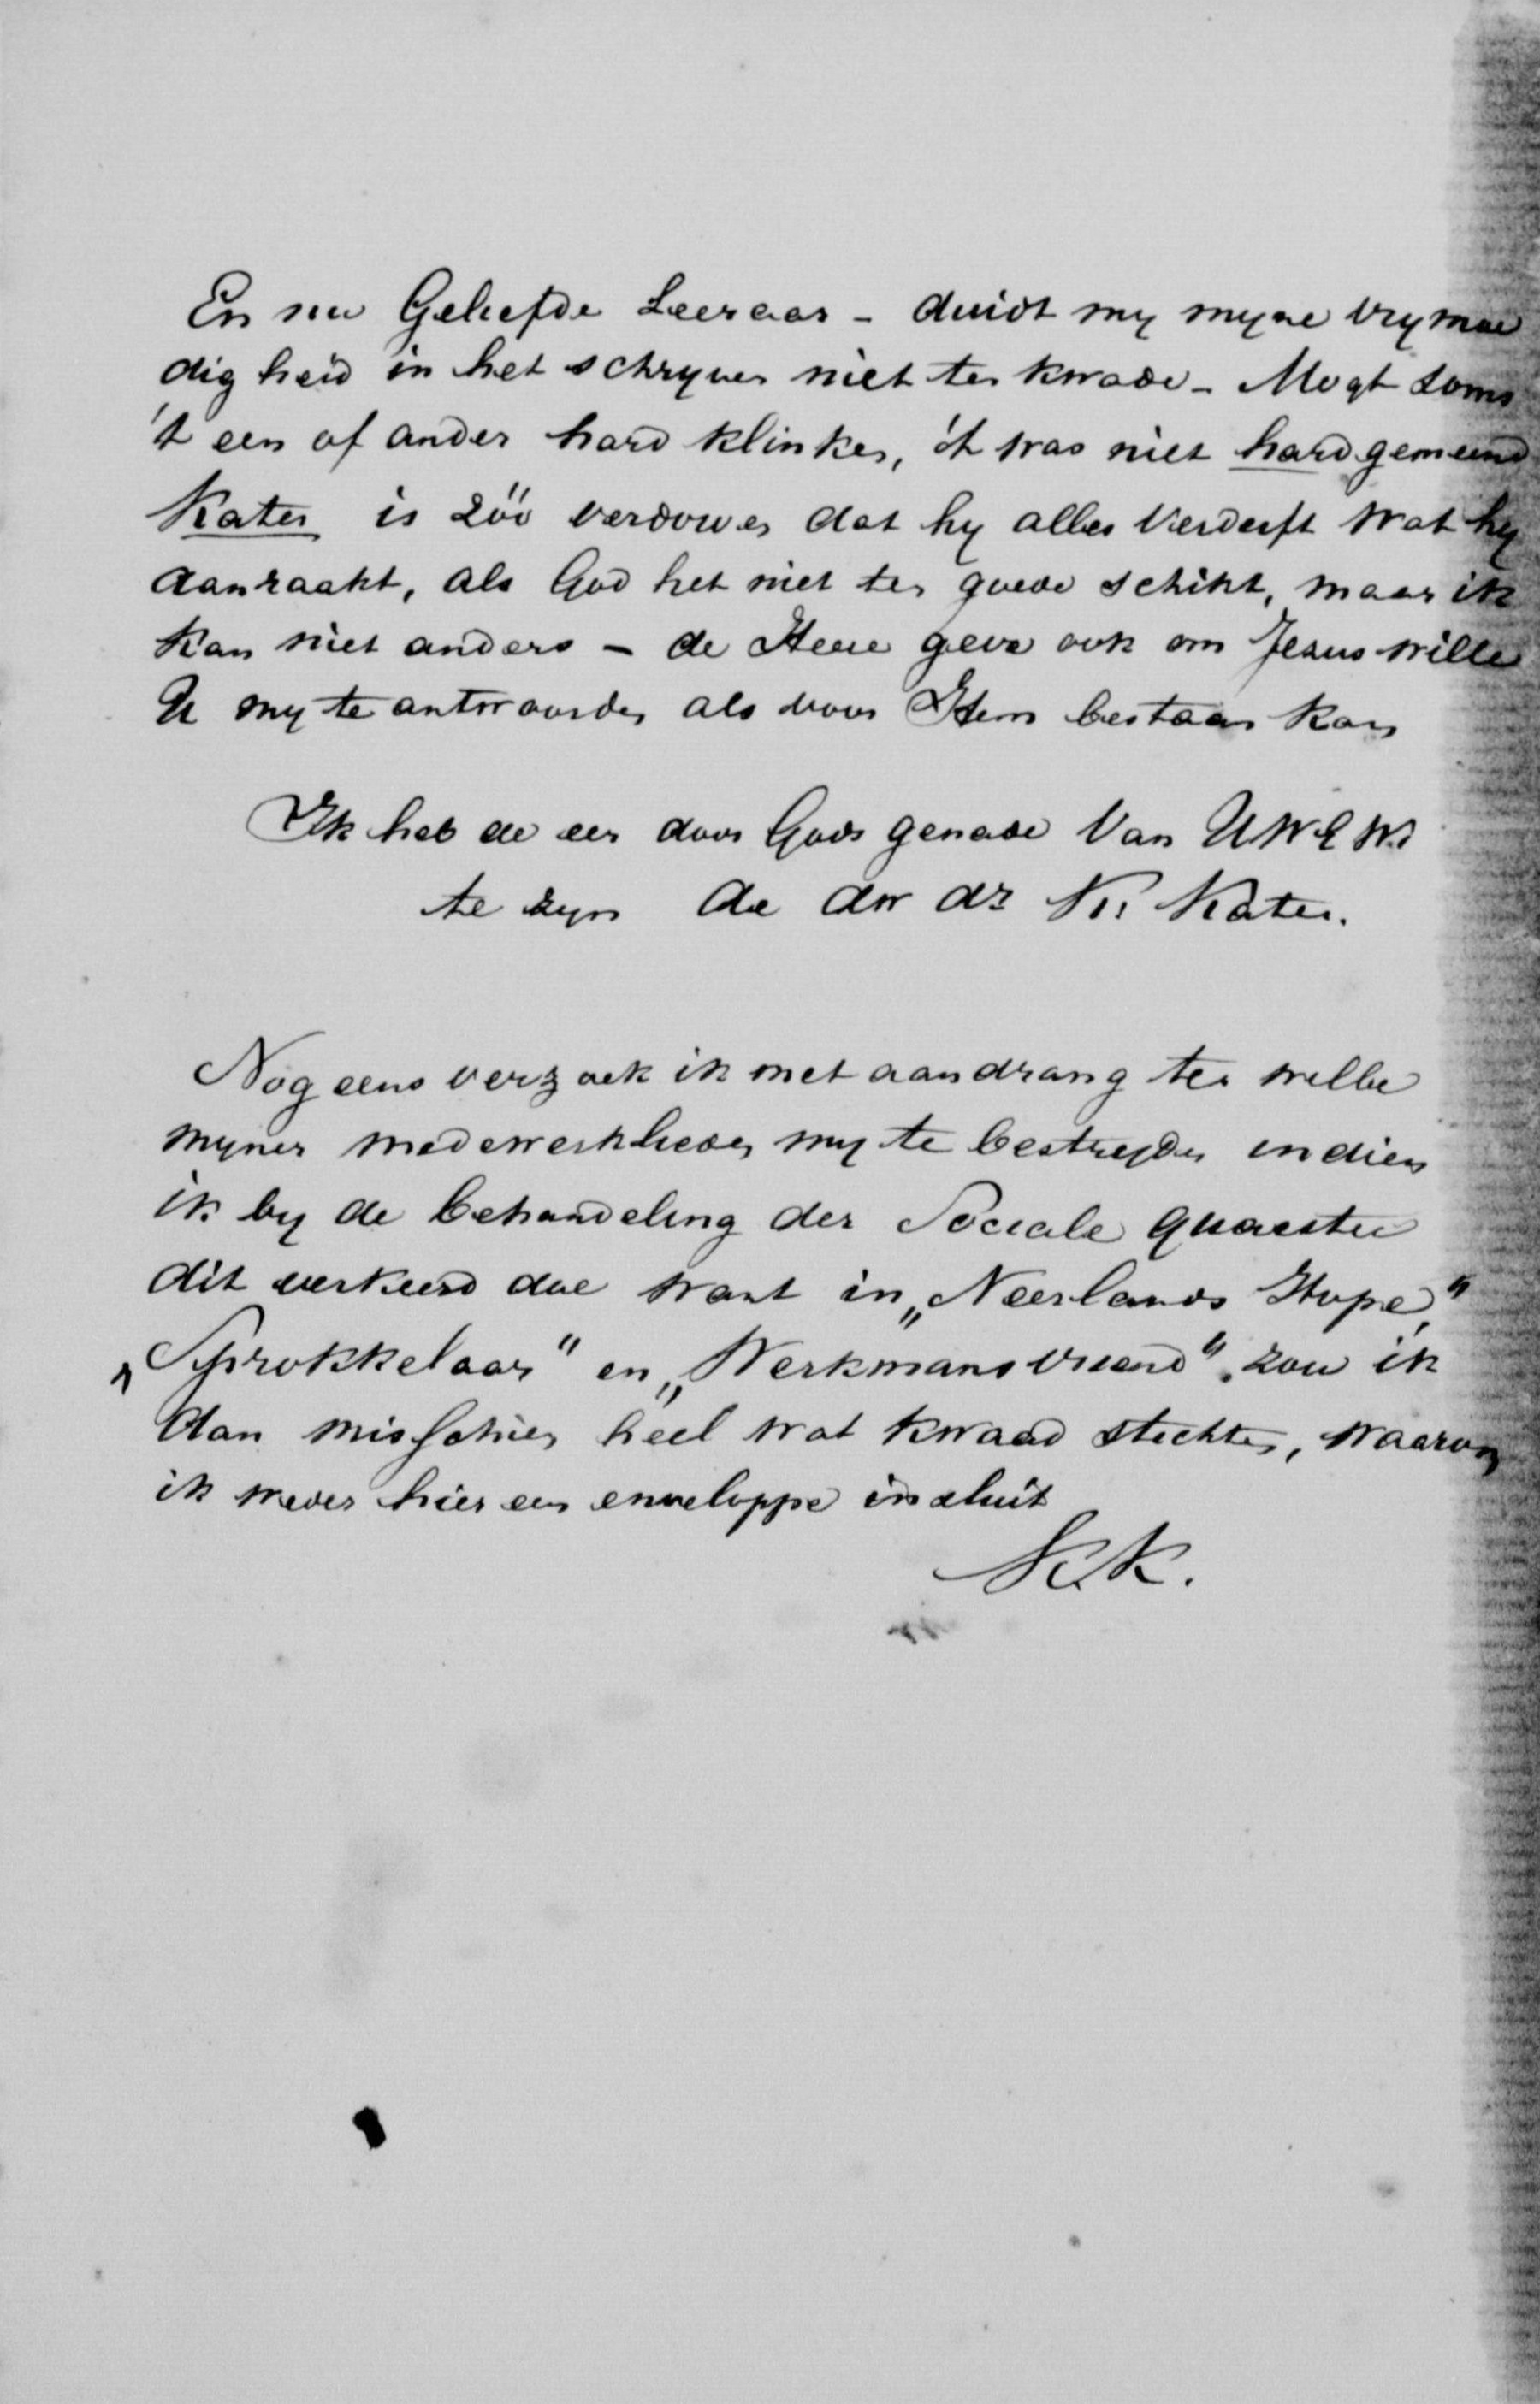 En nu Geliefde Leeraar - duidt my myne vrymoe
digheid in het schryven niet ten kwade - Mogt soms
't een of ander hard klinken, 't was niet hard gemeend
Kater is zóó verdorven dat hy alles verderft wat hy
aanraakt, als God het niet ten goede schikt, maar ik
kan niet anders - de Heere geve ook om Jesus wille
U my te antwoorden als voor Hem bestaan kan
Ik heb de eer door Gods genade Van UWEW.
te zyn de dw dr K. Kater.
Nog eens verzoek ik met aandrang ter wille
myner medewerklieden my te bestryden indien
ik by de behandeling der Sociale quaestie
dit verkeerd doe want in „Neerlands Hope,"
„Sprokkelaar" en „Werkmansvriend" zou ik
dan misschien heel wat kwaad stichten, waarvan
ik weder hier een enveloppe insluit
KK.